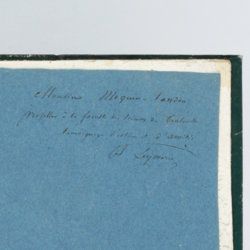 Monsieur Moquin-Tandon
professeur à la faculté des sciences de Toulouse
témoignage d'estime et d'amitié
Leymerie